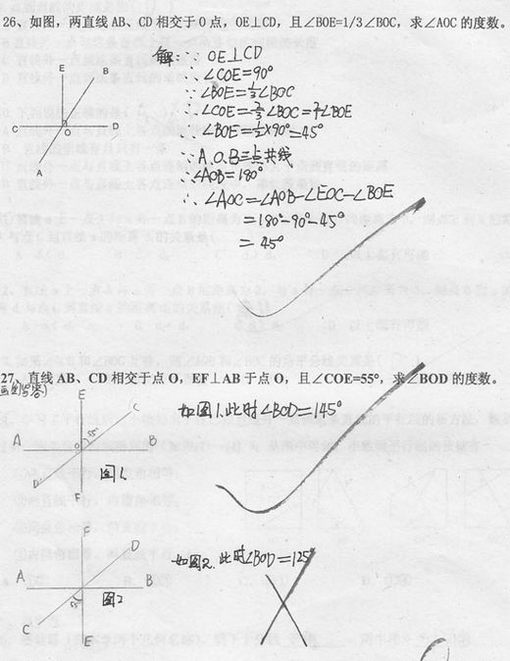 26、如图，两直线 AB、CD 相交于 O 点，OE⊥CD，且∠BOE=1/3∠BOC，求∠AOC 的度数。
解：∵ OE⊥CD
∴∠COE=90°
∵∠BOE=⅓∠BOC
∴∠COE=⅔∠BOC=2∠BOE
∴∠BOE=½×90°=45°
∵A.O.B三点共线
∴∠AOB=180°
∴∠AOC=∠AOB-∠EOC-∠BOE
=180°-90°-45°
=45°
E
B
C
O
D
A
27、直线 AB、CD 相交于点 O，EF⊥AB 于点 O，且∠COE=55°，求∠BOD 的度数。
如图1.此时∠BOD=145°
E
C
55°
A
O
B
D
F
图1
如图2.此时∠BOD=125°
F
D
A
B
55°
图2
C
E